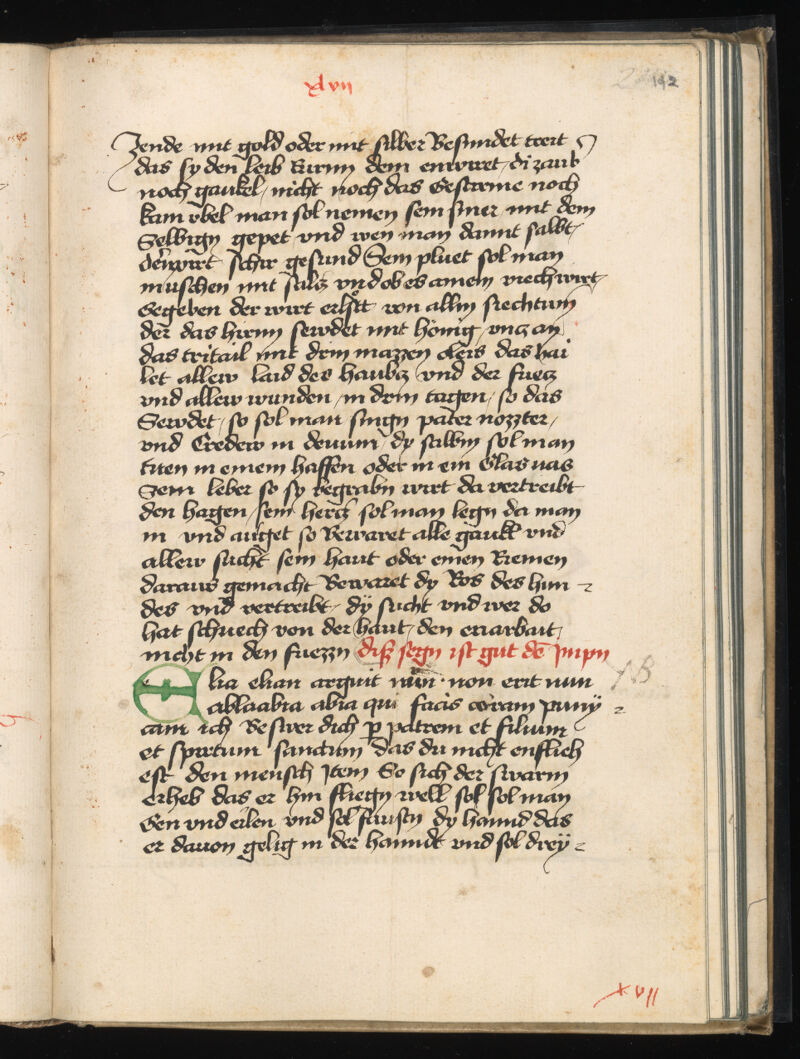 xlvii
192
Zende mit gold oder mit silber Besmidet trert
das sy den leib Rurnn dem enwirret di zaub
noch gaukel nicht noch das Gestirne noch
kain vbel man sol nemen sein smer mit dem
Selbign gepet vnd wen man damit salbt
der wirt schir gesund Sein pluet sol man
muschen mit salcz vnd ob es ainem viech wirt
Gegeben der wirt erlöst von allm siechtum
der das hirnn sewdet mit hönig vncz an
das tritail mit drin mazzen oleis das hai
let allew laid des haubcz vnd der fuecz
vnd allew wunden in drin tagen so das
Sewdet so sol man singn pater nozzter
vnd Credo in deuum dy salbm sol man
tuen in einem haffen oder in ein Glas uas
Sein leber so sy begrabn wirt da vertreibt
den hagen sein hercz sol man legn da man
in vnd auzget so Bewaret alle gaukl vnd
allew sucht sein haut oder einen Riemen
daraus gemacht Bewaret dy Ros des hun
des vnd vertreibt dy sucht vnd wer do
hat schuech von der haut den enarbait
nicht in den fuezzn disz segn ist gut de Impn
Elia elian arguit non erit num
ablaabra abra qui facis coram puny
cam ich Beswer dich per patrem et filium
et spiritum sanctum das du nicht enflich
est den mensch Item So sich der swarm
erheb das er hin fliegn well sol sol man
Gen vnd eilen vnd sol dy hannd das
er dauon gelig in der hanndt vnd sol drey
xvii